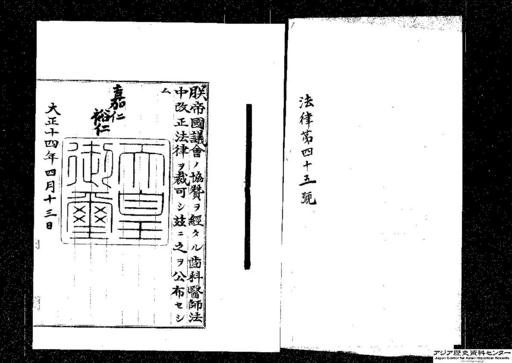 法律第四十五號
朕帝國議會ノ協贊ヲ經タル齒科醫師法
中改正法律ヲ裁可シ玆ニ之ヲ公布セシ
ム
嘉仁
裕仁
天皇御璽
大正十四年四月十三日
アジア歴史資料センター
Japan Center for Asian Historical Records